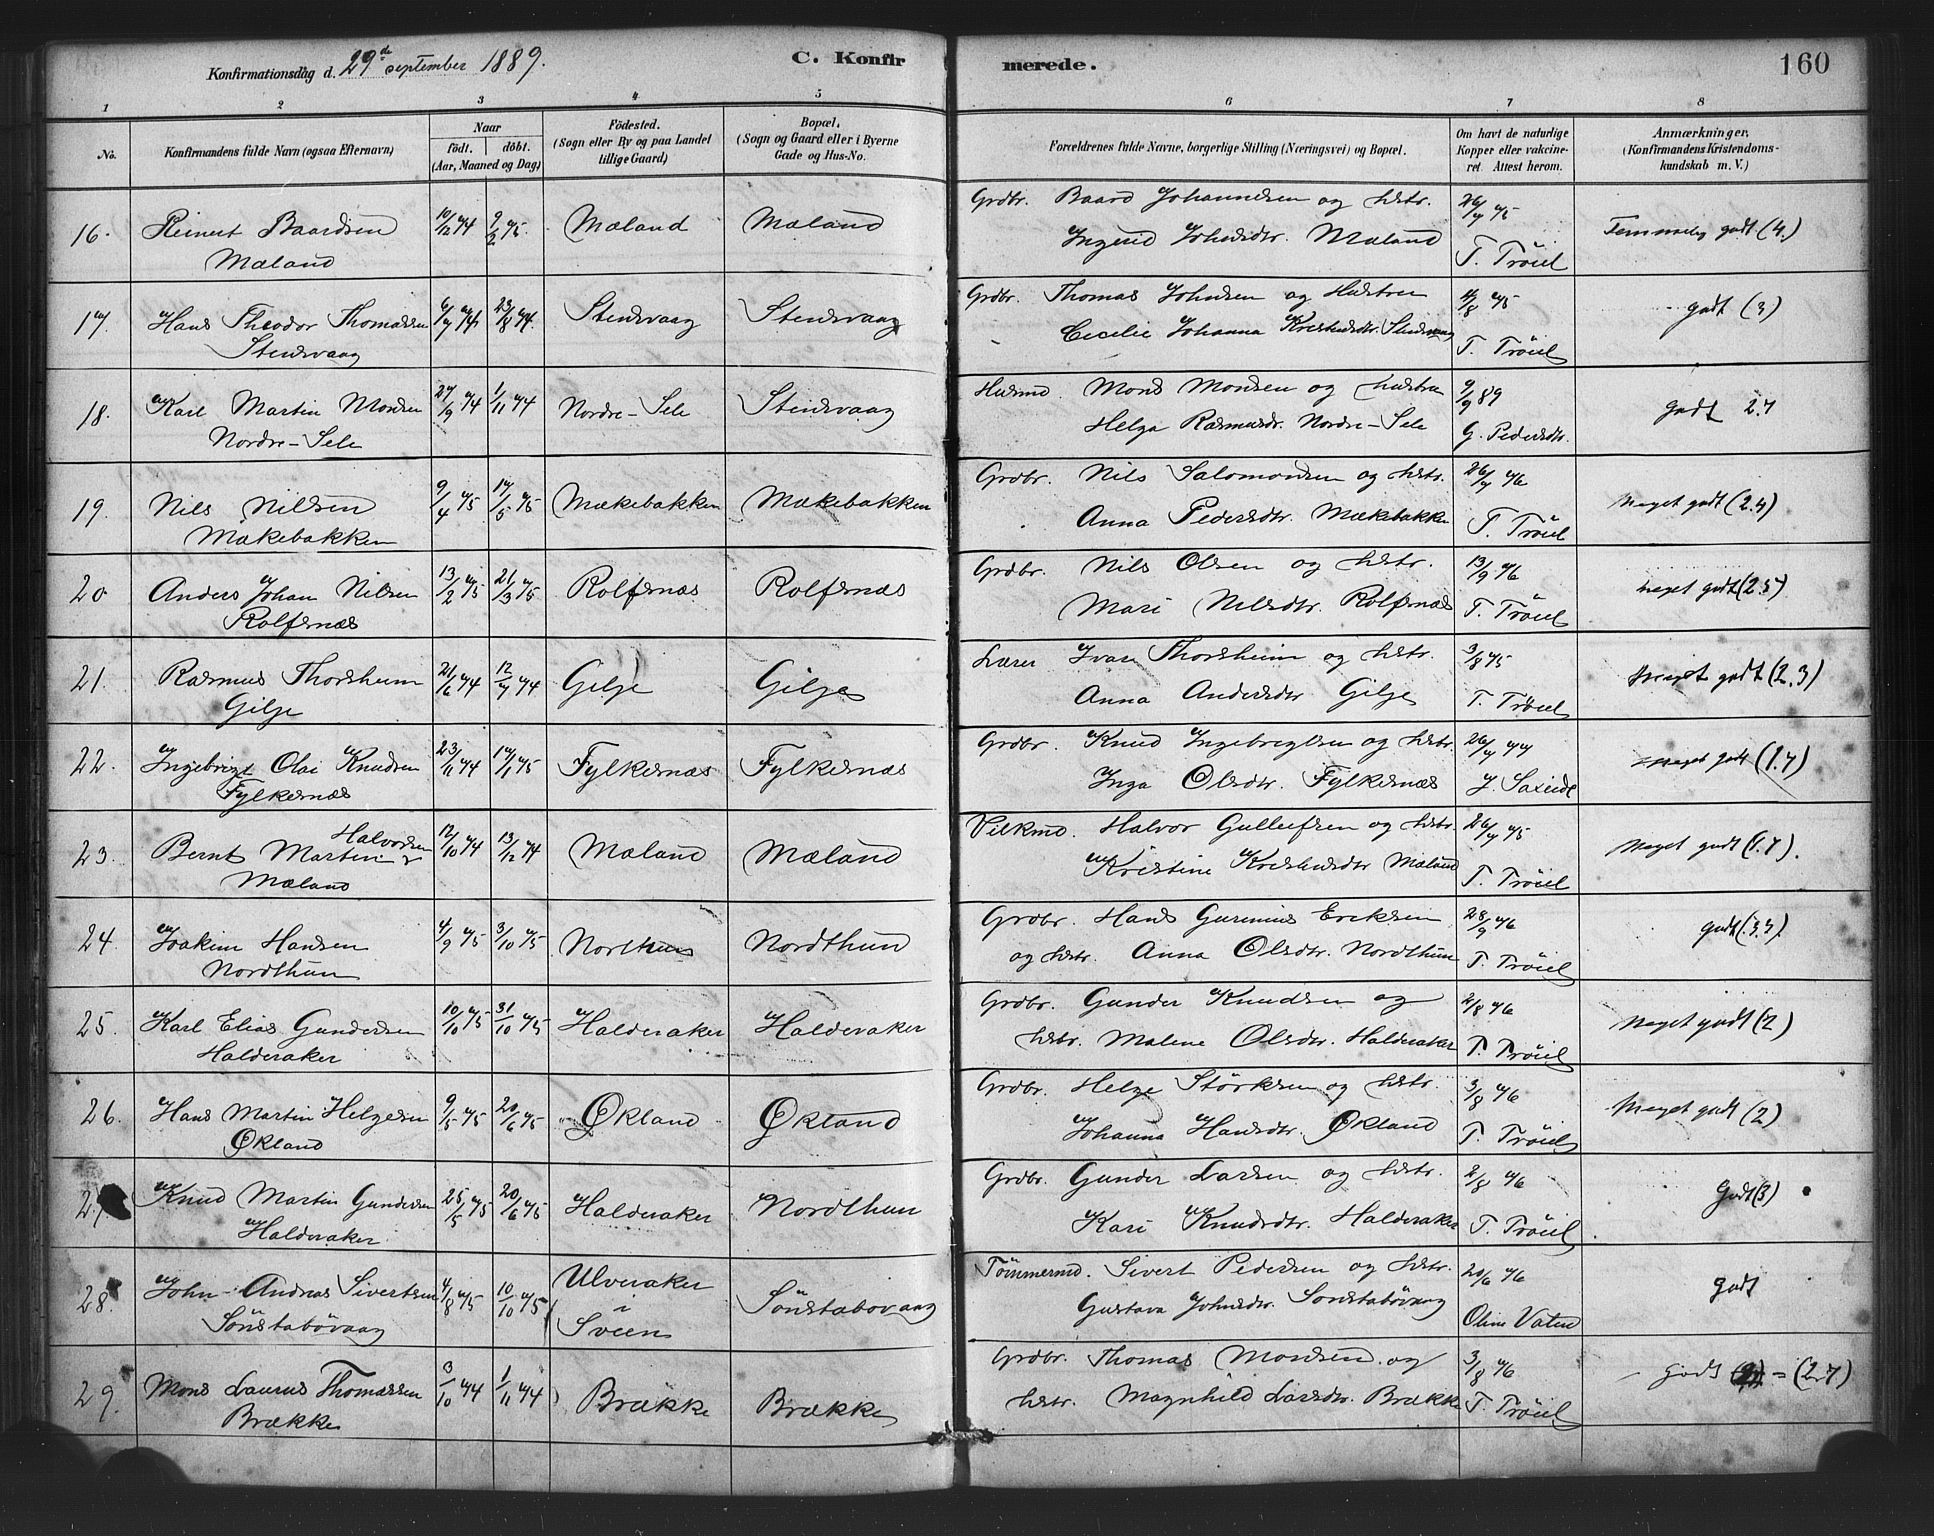 Konfirmationsdag d. 29de september 1889.
C. Konfirmerede.
160
1 2 3 4 5 6 7 8
No.
Konfirmandens fulde Navn (ogsaa Efternavn)
Naar
födt. döbt.
(Aar, Maaned og Dag)
Födested.
(Sogn eller By og paa Landet
tillige Gaard)
Bopæl.
(Sogn og Gaard eller i Byerne
Gade og Hus-No.
Forældrenes fulde Navne, borgerlige Stilling (Næringsvei) og Bopæl.
Om havt de naturlige
Kopper eller vakcine-
ret. Attest herom.
Anmærkninger.
(Konfirmandens Kristendoms-
kundskab m. V.)
16. Reinert Baardsen 10/12 74 9/2 75. Mæland Mæland Grdbr. Baard Johannesen og Hstr. 26/7 75 Temmelig godt (4.)
Mæland Ingerid Johnsdtr. Mæland T. Tröiel
17. Hans Theodor Thomassen 6/7 74 23/8 74. Stensvaag Stensvaag Grdbr. Thomas Johnsen og Hustru 4/8 75 godt (3)
Stensvaag Cecilie Johanna Kristensdtr. Stensvaag T. Tröiel
18. Karl Martin Monsen 27/9 74 1/11 74 Nordre-Sele Stensvaag Husmd Mons Monsen og hustru 9/9 89 godt 2.7
Nordre-Sele Helga Rasmusdr. Nordre-Sele G. Pedersdtr.
19. Nils Nilsen 9/4 75 17/5 75 Mækebakken Mækebakken Grdbr. Nils Salomonsen og Hstr. 26/7 76 Meget godt (2.4)
Mækebakken Anna Pedersdtr. Mækebakken T. Tröiel
20 Anders Johan Nilsen 13/2 75 21/3 75 Rolfsnæs Rolfsnæs Grdbr. Nils Olsen og Hstr. 13/9 76 meget godt (2.5)
Rolfsnæs Mari Nilsdtr. Rolfsnæs T. Tröiel
21. Rasmus Thorsheim 21/6 74 12/7 74 Gilje Gilje Lærer Ivar Thorsheim og Hstr. 3/8 75 Meget godt (2.3)
Gilje Anna Andersdtr Gilje T. Tröiel
22. Ingebrigt Olai Knudsen 23/11 74 17/1 75 Fylkesnæs Fylkesnæs Grdbr. Knud Ingebrigtsen og Hstr. 26/7 77 meget godt (1.7)
Fylkesnæs Inga Olsdtr. Fylkesnæs
23. Bernt Martin Halvorsen 12/10 74 13/12 74 Mæland Mæland Halvor Gulleifsen og Hstr. 26/7 75 Meget godt (1.7).
Mæland Kristine Kristensdtr Mæland T. Tröiel
24. Joakim Hansen 4/9 75 3/10 75 Northun Nordthun Grdbr. Hans Gurinius Eriksen 28/9 76 godt (3.3).
Nordthun og Hstr. Anna Olsdtr. Nordthun T. Tröiel
25. Karl Elias Gundersen 10/10 75 31/10 75 Halderaker Halderaker Grdbr. Gunder Knudsen og 2/8 76 Meget godt (2)
Halderaker Hstr. Malene Olsdtr. Halderaker T. Tröiel
26. Hans Martin Helgesen 9/5 75 20/6 75 Økland Økland Grdbr. Helge Störksen og Hstr. 3/8 76 Meget godt (2)
Økland Johanna Hansdtr. Økland T. Tröiel
27. Knud Martin Gundersen 25/5 75 20/6 75 Halderaker Nordthun Grdbr. Gunder Larsen og Hstr. 2/8 76 Godt (3)
Halderaker Kari Knudsdtr. Halderaker T. Tröiel
28. John Andreas Sivertsen 4/8 75 10/10 75 Ulveraker i Sveen Sönstabovaag Tömmermd. Sivert Pedersen og Hstr. 20/6 76 Godt
Sönstabövaag Gustava Johnsdtr. Sönstabövaag Oline Vatne
29. Mons Laurus Thomassen 3/10 74 1/11 74 Brække Brække Grdbr. Thomas Monsen og 3/8 76 godt = (2.7)
Brække Hstr. Magnhild Larsdtr. Brække T. Tröiel